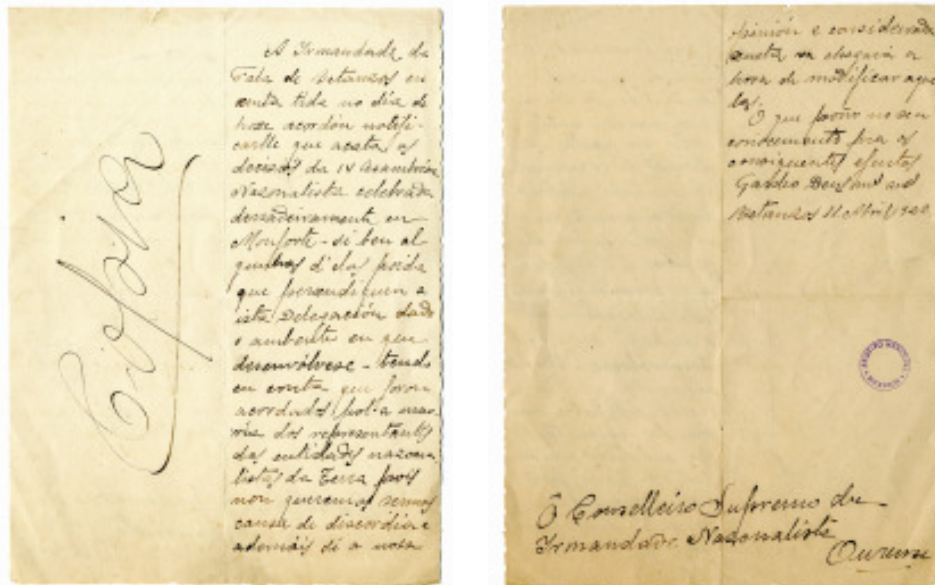 Copia
A Irmandade da
Fala de Betanzos en
xunta tida no día de
hoxe acordóu notifi-
carlle que acata os
decisós da IV Asambrea
Nazonalista celebrada
derradeiramente en
Monforte - si ben al
gunhas d'elas poida
que perxudiquen a
ista Delegación dado
o ambente en que
desenvólvese - tendo
en conta que foron
acordados pol-a mayo
ría dos representantes
das entidades nazona
listas da Terra pois
non queremos semos
causa de discordia e
ademáis si a nosa
opinión e considerada
xusta xa chegaría a
hora de modificar aque
las.
O que poño no seu
conocemento pra os
consiguentes efeutos
Gardeo Deus
Betanzos 11 Abril
Ó Conselleiro Supremo da
Irmandade Nazonalista
Ourense